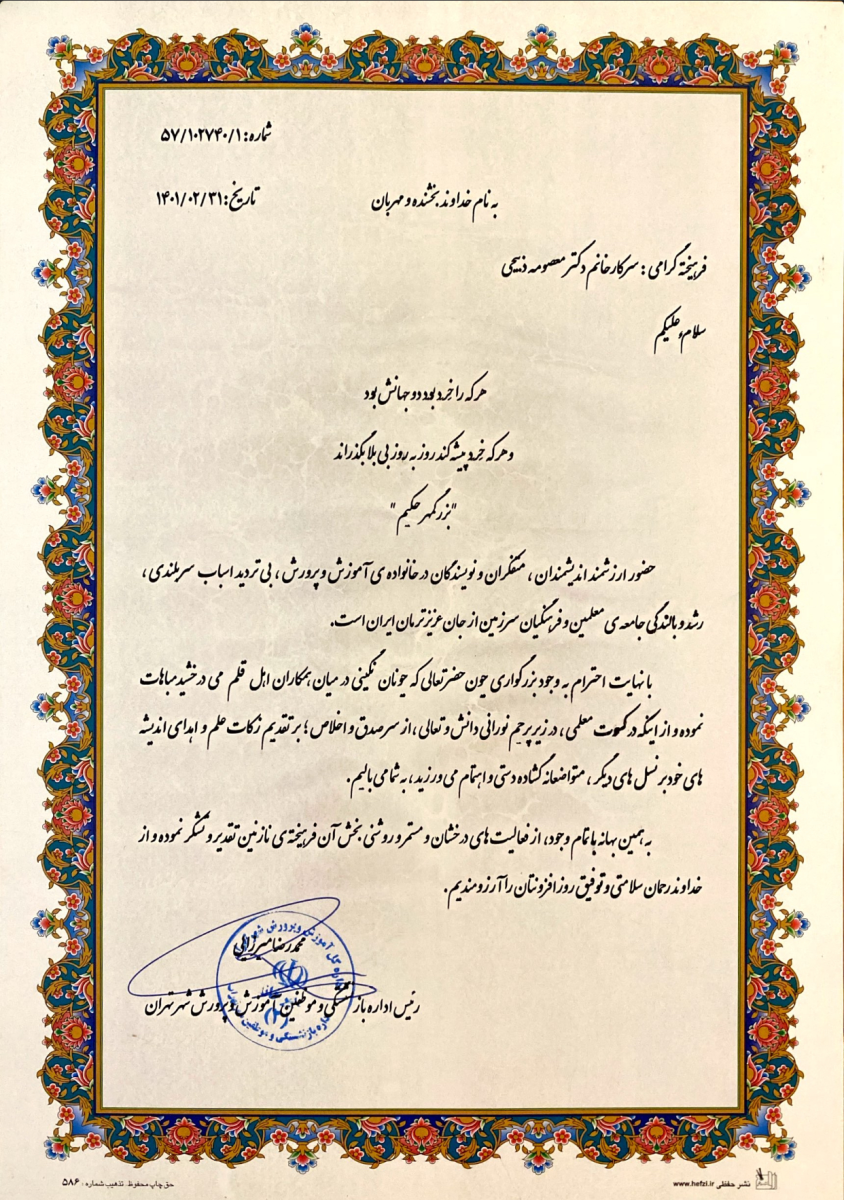 شماره: ۵۷/۱۰۲۷۴۰/۱
به نام خداوند بخشنده و مهربان
تاریخ: ۱۴۰۱/۰۲/۳۱
فرهیخته گرامی : سرکار خانم دکتر معصومه ذبیحی
سلامٌ علیکم
هر که را خِرَد بود دو جهانش بود
و هر که خِرَد پیشه کند روز به روز بی بلا بگذراند
"بزرگمهر حکیم"
حضور ارزشمند اندیشمندان ، متفکران و نویسندگان در خانواده ی آموزش و پرورش ، بی تردید اسباب سربلندی ،
رشد و بالندگی جامعه ی معلمین و فرهنگیان سرزمین از جان عزیزترمان ایران است.
با نهایت احترام به وجود بزرگواری چون حضرتعالی که چونان نگینی در میان همکاران اهل قلم می درخشید مباهات
نموده و از اینکه در کسوت معلمی ، در زیر پرچم نورانی دانش و تعالی ، از سر صدق و اخلاص ؛ بر تقدیم زکات علم و اهدای اندیشه
های خود بر نسل های دیگر ، متواضعانه گشاده دستی و اهتمام می ورزید ، به شما می بالیم .
به همین بهانه با تمام وجود، از فعالیت های درخشان و مستمر و روشنی بخش آن فرهیخته ی نازنین تقدیر و تشکر نموده و از
خداوند رحمان سلامتی و توفیق روزافزونتان را آرزومندیم .
محمدرضا میرزائی
رئیس اداره بازنشستگی و موظفین آموزش و پرورش شهر تهران
اداره کل آموزش و پرورش شهر
اداره بازنشستگی و موظفین
نشر حفظی www.hefzi.ir
حق چاپ محفوظ. تذهیب شماره : ۵۸۶